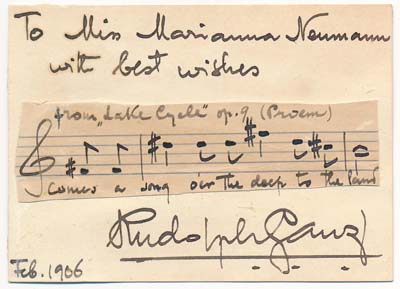 To Miss Marianna Neumann
with best wishes
from „Lake Cycle" op. 9 (Proem)
Comes a song o'er the deep to the land
Rudolph Ganz
Feb. 1906